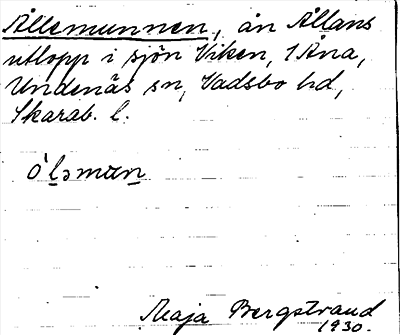 Ållemunnen, ån Ållans
utlopp i sjön Viken, 1 Åna,
Undenäs sn, Vadsbo hd,
Skarab. l.
ó'l̠əmɯn̠
Maja Bergstrand
1930.